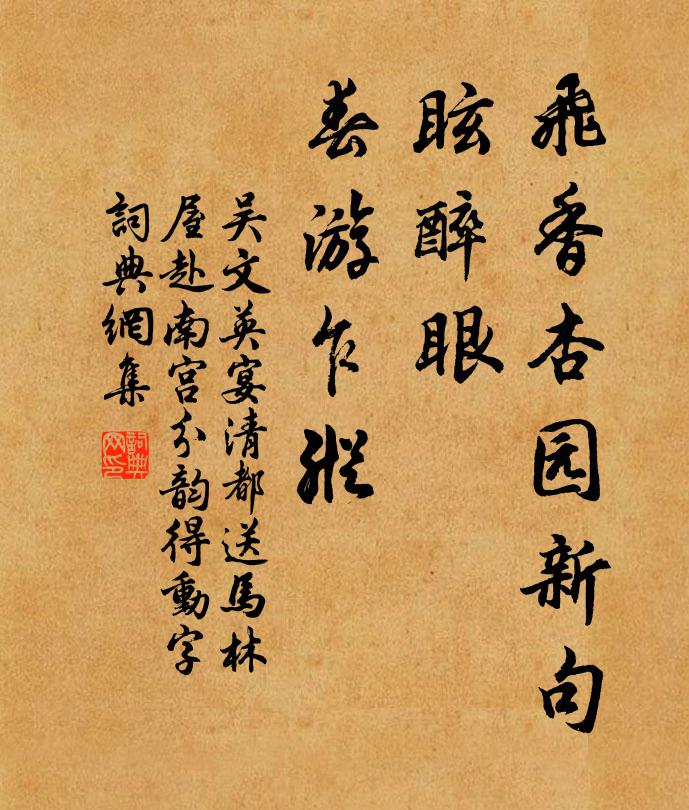 飛香杏园新句
眩醉眼
春游乍縱
吴文英宴清都送馬林
屋赴南宫分韵得動字
詞典網集
詞典网印